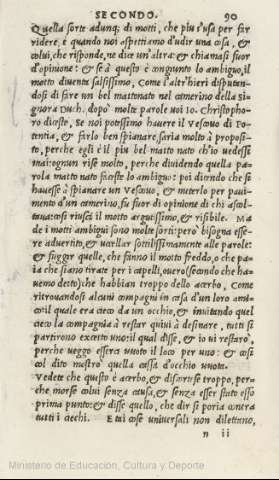 SECONDO. 90
Quella sorte adunq; di motti, che piu s'usa per far
ridere, è quando noi aspettiamo d'udir una cosa, &
colui, che risponde, ne dice un'altra: & chiamasi fuor
d'opinione: & se à questo è congiunto lo ambiguo, il
motto diventa salsissimo. Come l'altr'hieri disputan-
dosi di fare un bel mattonato nel camerino della Si-
gnora Duch. dopò molte parole voi Io. Christopho-
ro diceste, Se noi potessimo havere il Vescovo di Po-
tentia, & farlo ben spianare, saria molto à proposi-
to, perche egli è il piu bel matto nato ch'io vedessi
mai: ognun rise molto, perche dividendo quella pa-
rola matto nato faceste lo ambiguo: poi dicendo che si
havesse à spianare un Vescovo, & metterlo per pavi-
mento d'un camerino, fu fuor di opinione di chi ascol-
tava: così riuscì il motto argutissimo, & risibile. Ma
de i motti ambigui sono molte sorti: però bisogna esse-
re advertito, & uccellar sottilissimamente alle parole:
& fuggir quelle, che fanno il motto freddo, o che pa-
ia che siano tirate per i capelli, overo (secondo che ha-
vemo detto) che habbian troppo dello acerbo. Come
ritrovandosi alcuni compagni in casa d'un loro ami-
co: il quale era cieco da un occhio, & invitando quel
cieco la compagnia à restar quivi à desinare, tutti si
partirono eccetto uno: il qual disse, & io vi restarò,
perche veggo esserci vuoto il loco per uno: & così
col dito mostrò quella cassa d'occhio vuota.
Vedete che questo è acerbo, & discortese troppo, per-
che morse colui senza causa, & senza esser stato esso
prima punto: & disse quello, che dir si poria contra
tutti i ciechi. E tai cose universali non dilettano,
n ii
Ministerio de Educación, Cultura y Deporte